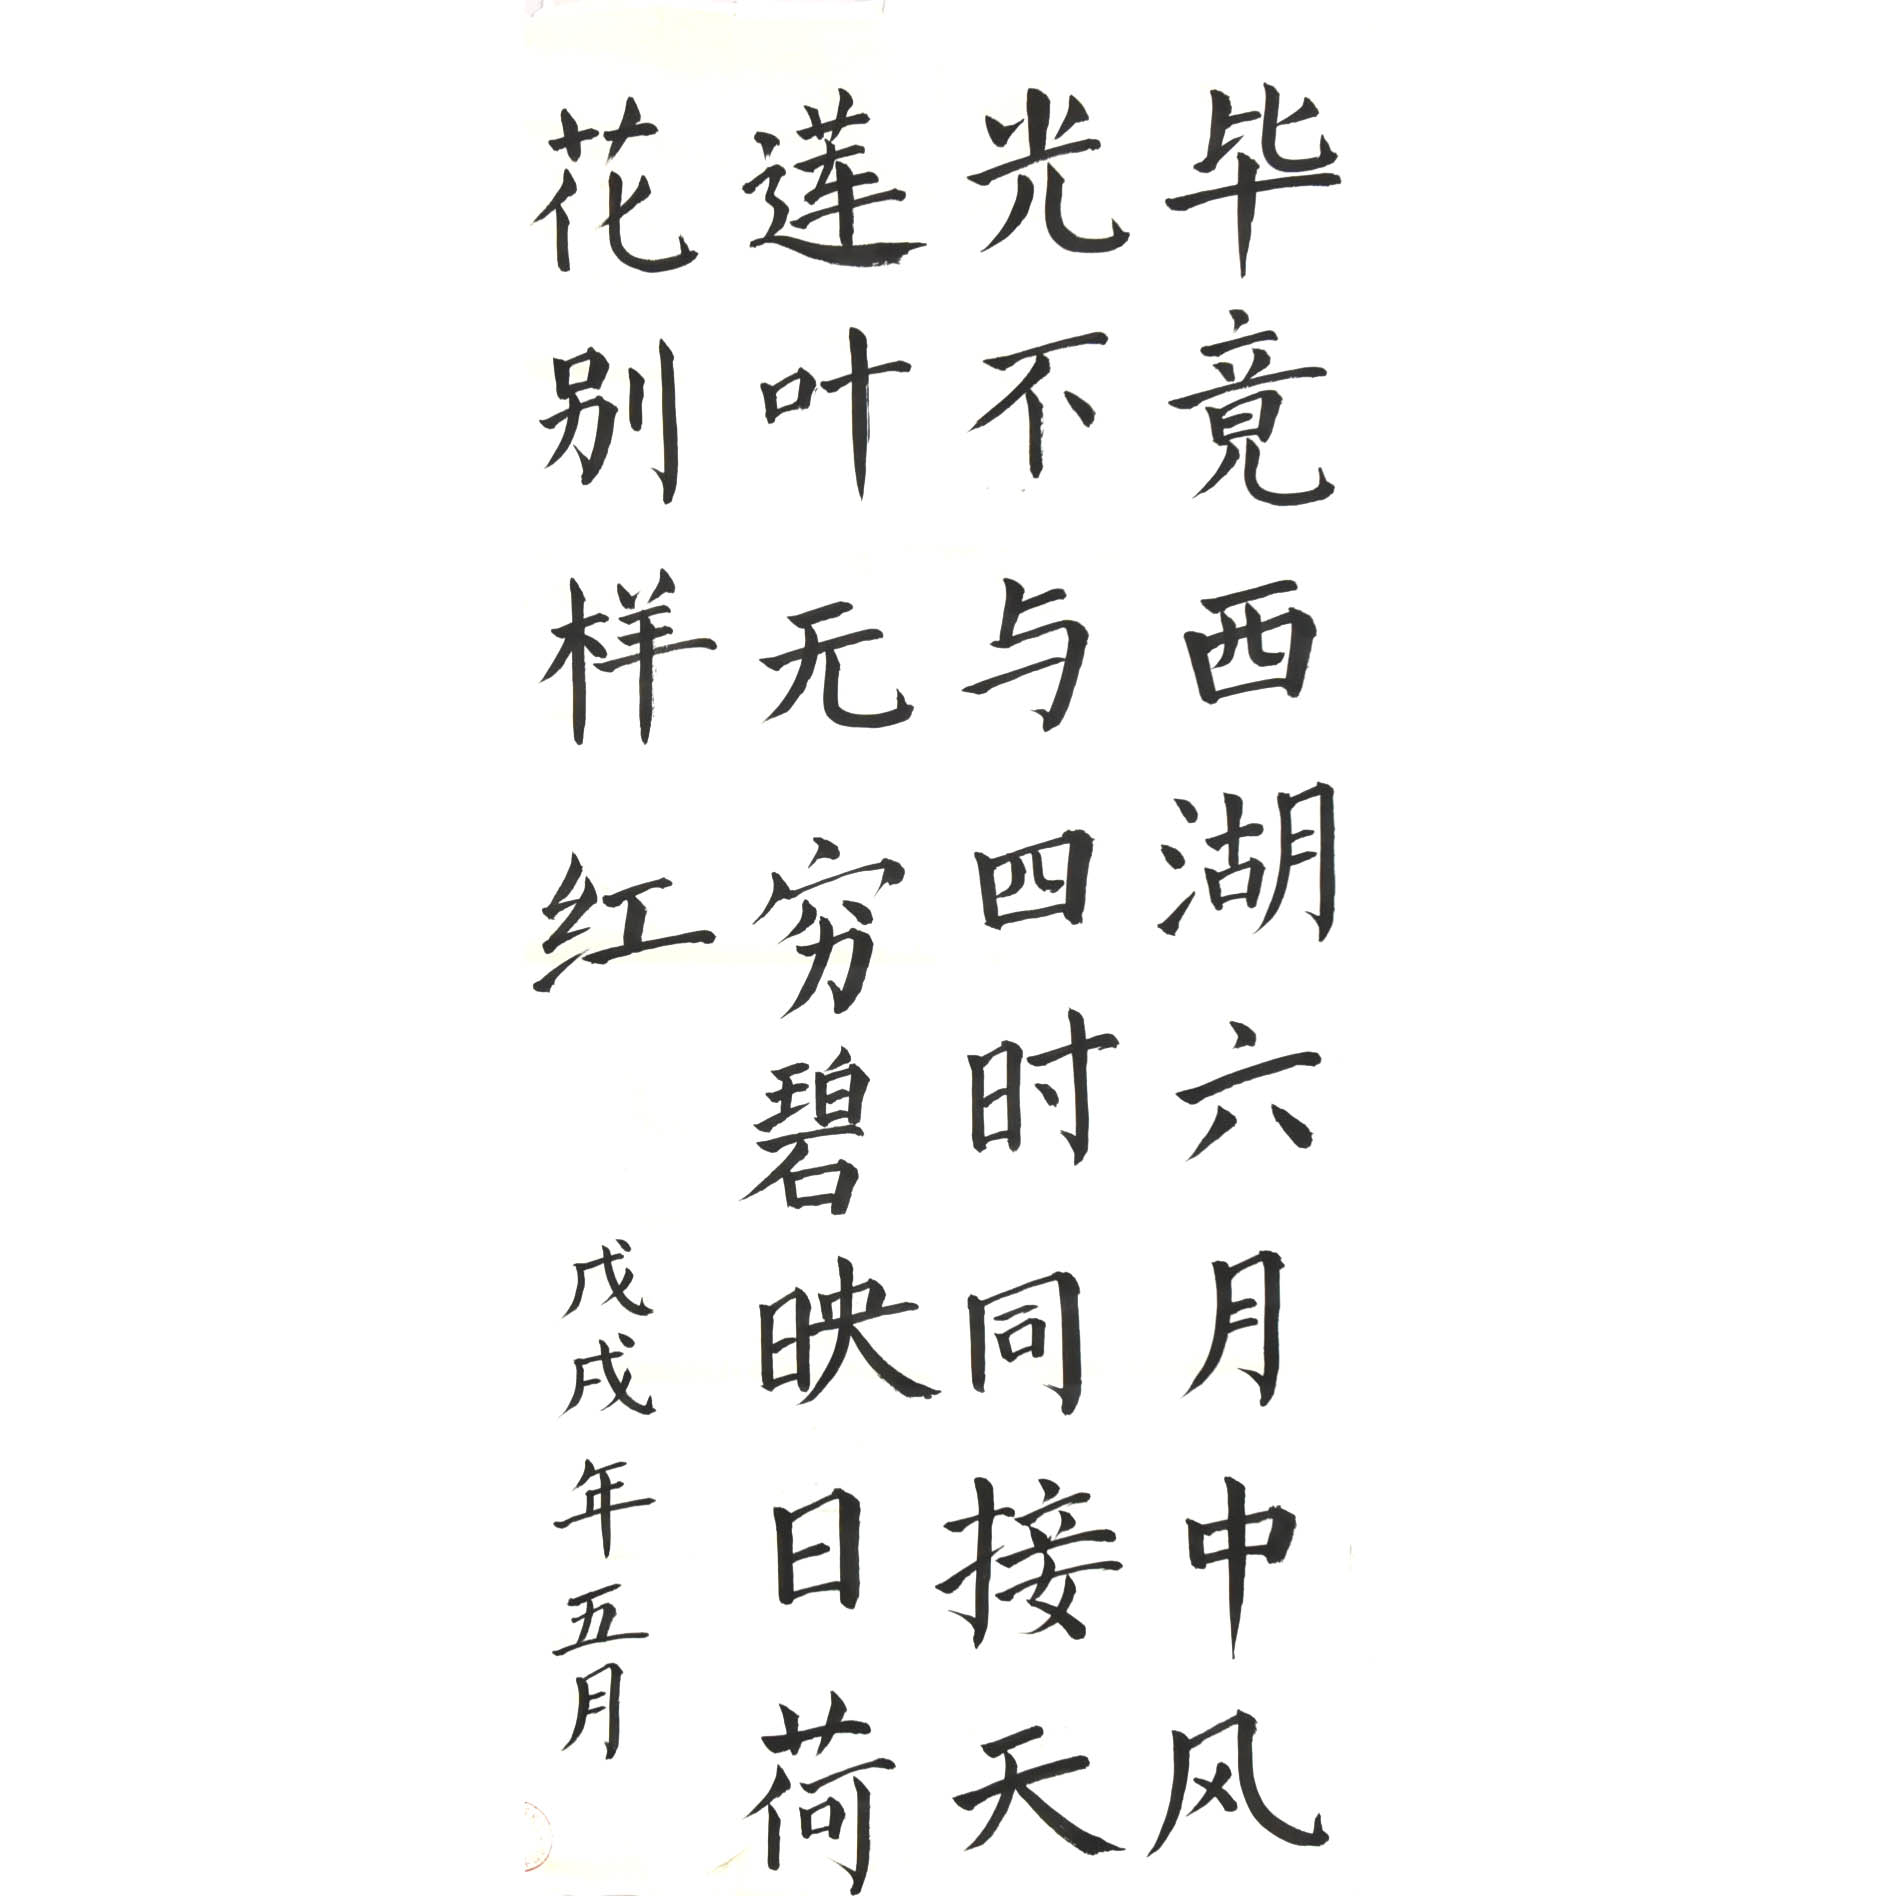 毕竟西湖六月中风
光不与四时同接天
莲叶无穷碧映日荷
花别样红
戊戌年五月